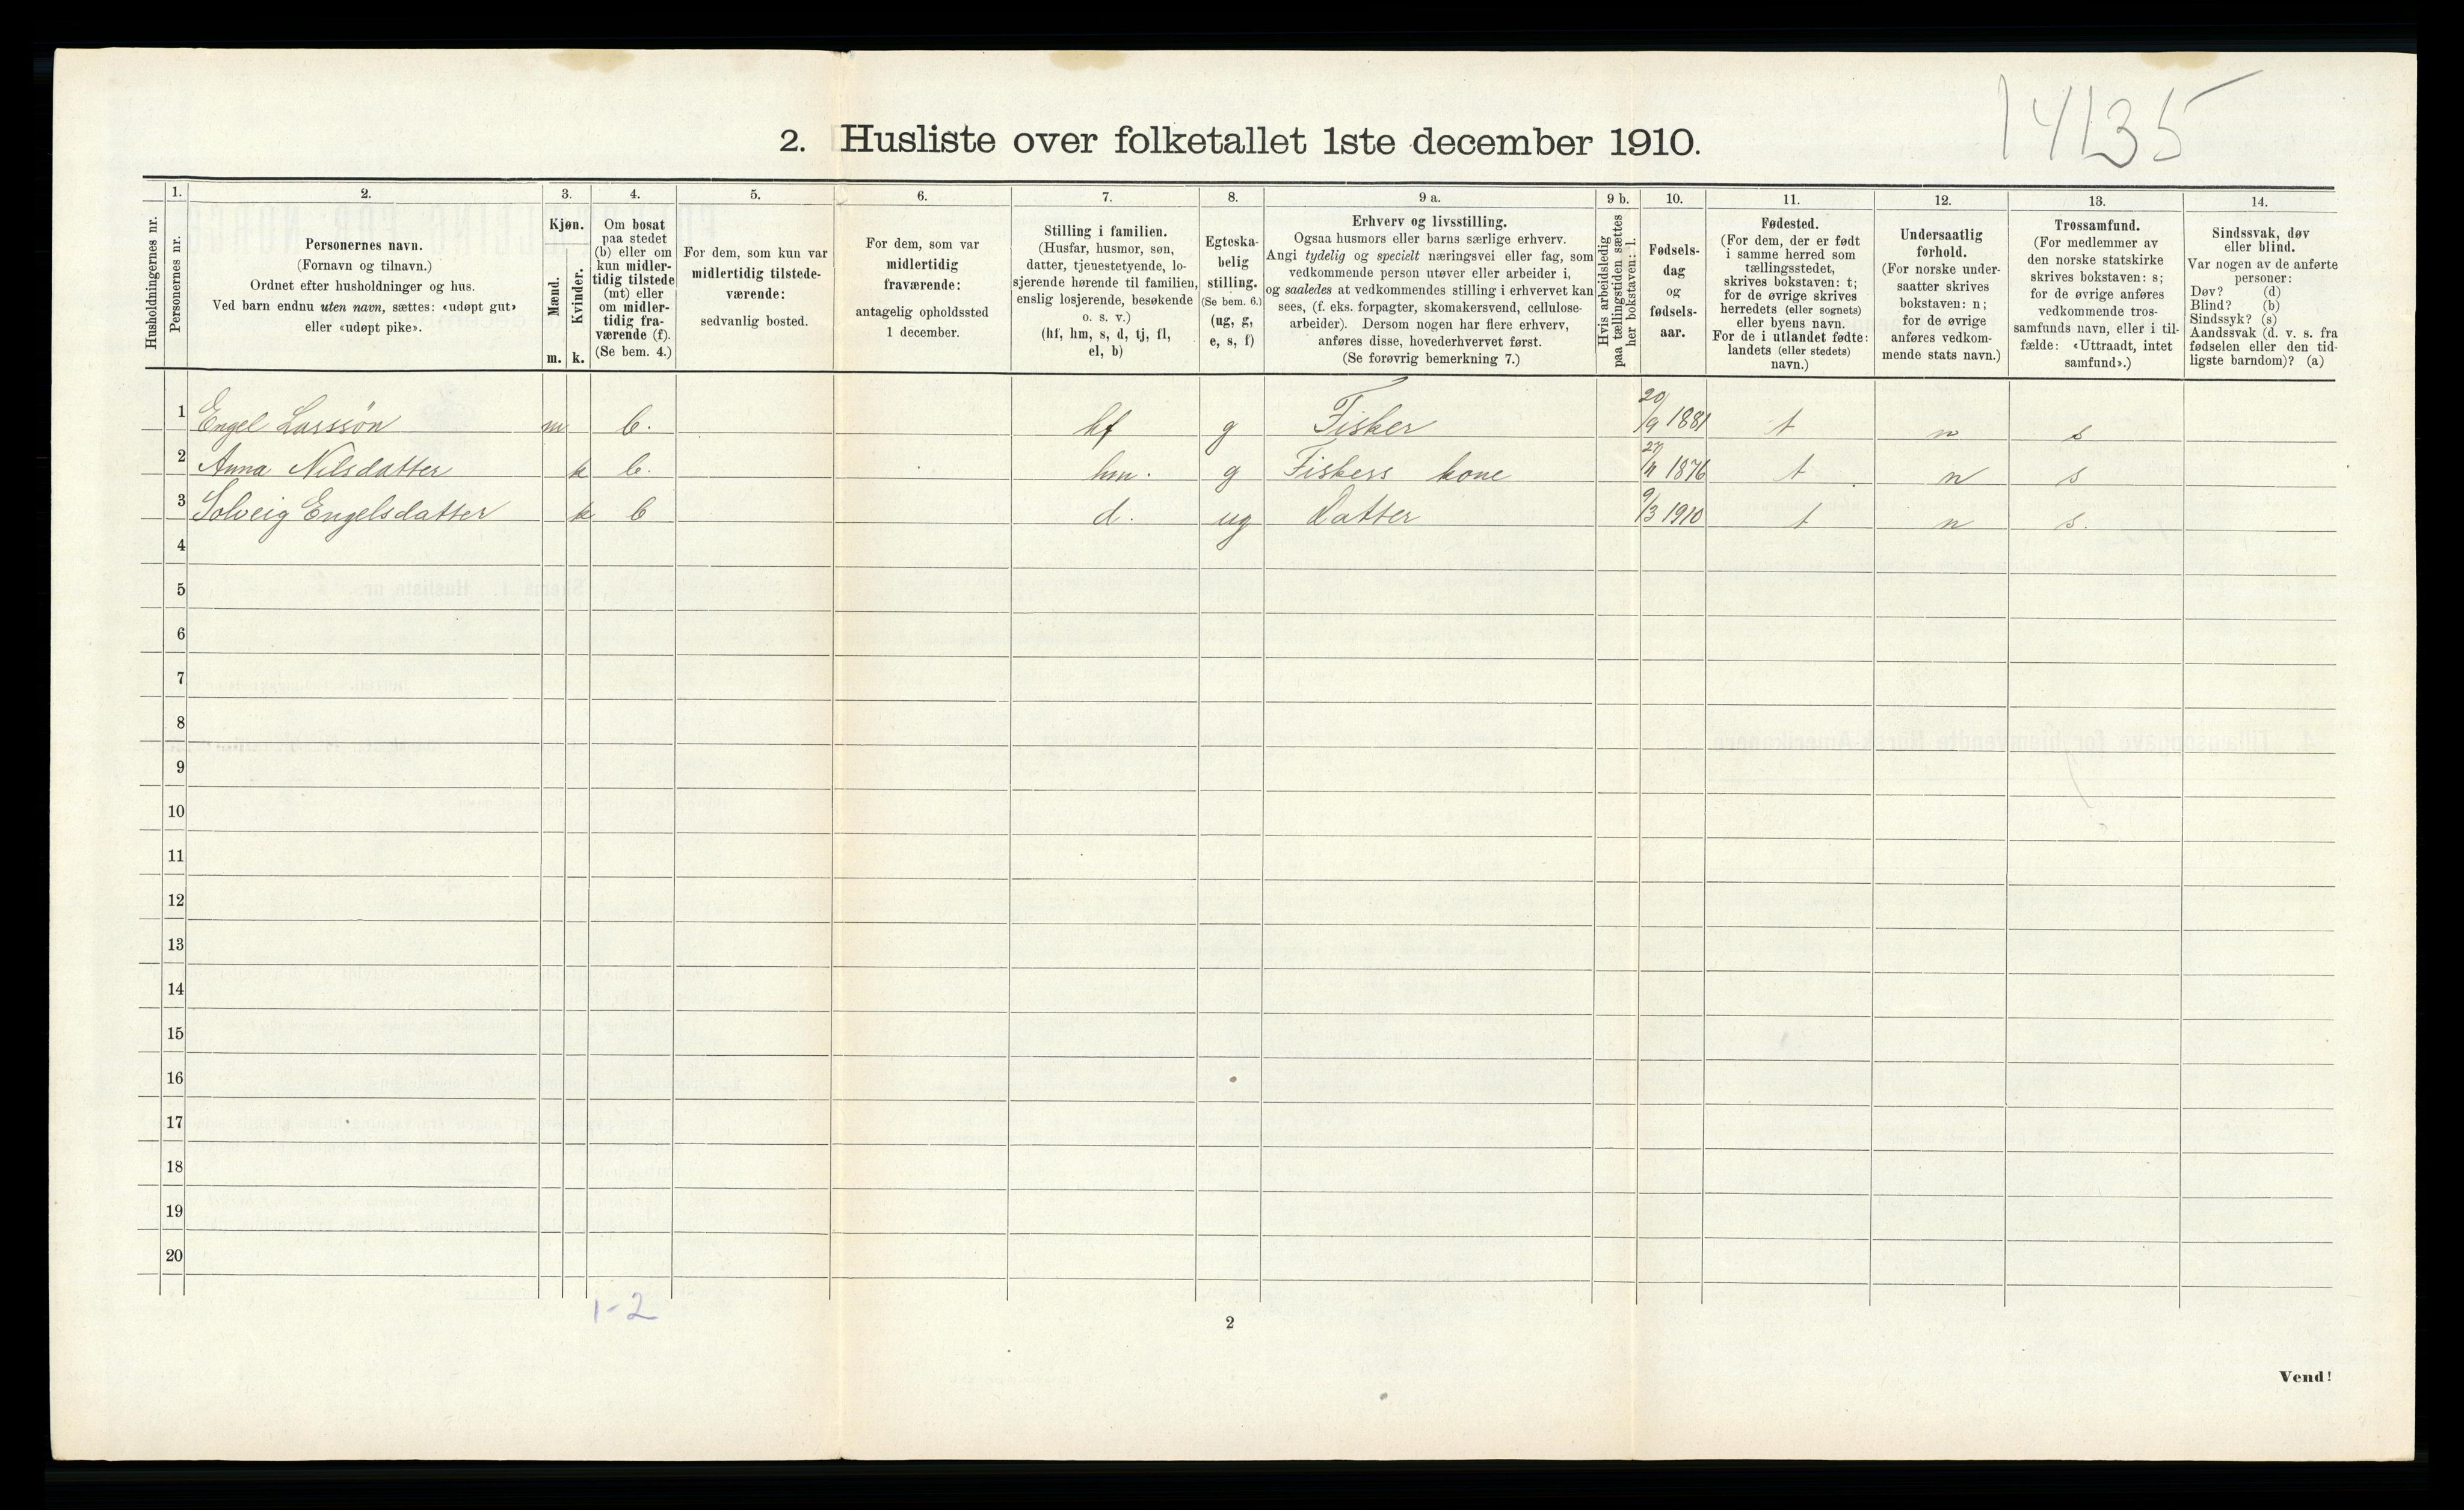 14135
2. Husliste over folketallet 1ste december 1910.
Husholdningernes nr.
1.
Personernes nr.
2.
Personernes navn.
(Fornavn og tilnavn.)
Ordnet efter husholdninger og hus.
Ved barn endnu uten navn, sættes: «udøpt gut»
eller «udøpt pike».
3.
Kjøn.
Mænd.
m.
Kvinder.
k.
4.
Om bosat
paa stedet
(b) eller om
kun midler-
tidig tilstede
(mt) eller
om midler-
tidig fra-
værende (f).
(Se bem. 4.)
5.
For dem, som kun var
midlertidig tilstede-
værende:
sedvanlig bosted.
6.
For dem, som var
midlertidig
fraværende:
antagelig opholdssted
1 december.
7.
Stilling i familien.
(Husfar, husmor, søn,
datter, tjenestetyende, lo-
sjerende hørende til familien,
enslig losjerende, besøkende
o. s. v.)
(hf, hm, s, d, tj, fl,
el, b)
8.
Egteska-
belig
stilling.
(Se bem. 6.)
(ug, g,
e, s, f)
9 a.
Erhverv og livsstilling.
Ogsaa husmors eller barns særlige erhverv.
Angi tydelig og specielt næringsvei eller fag, som
vedkommende person utøver eller arbeider i,
og saaledes at vedkommendes stilling i erhvervet kan
sees, (f. eks. forpagter, skomakersvend, cellulose-
arbeider). Dersom nogen har flere erhverv,
anføres disse, hovederhvervet først.
(Se forøvrig bemerkning 7.)
9 b.
Hvis arbeidsledig
paa tællingstiden sættes
her bokstaven: l.
10.
Fødsels-
dag
og
fødsels-
aar.
11.
Fødested.
(For dem, der er født
i samme herred som
tællingsstedet,
skrives bokstaven: t;
for de øvrige skrives
herredets (eller sognets)
eller byens navn.
For de i utlandet fødte:
landets (eller stedets)
navn.)
12.
Undersaatlig
forhold.
(For norske under-
saatter skrives
bokstaven: n;
for de øvrige
anføres vedkom-
mende stats navn.)
13.
Trossamfund.
(For medlemmer av
den norske statskirke
skrives bokstaven: s;
for de øvrige anføres
vedkommende tros-
samfunds navn, eller i til-
fælde: «Uttraadt, intet
samfund».)
14.
Sindssvak, døv
eller blind.
Var nogen av de anførte
personer:
Døv? (d)
Blind? (b)
Sindssyk? (s)
Aandssvak (d. v. s. fra
fødselen eller den tid-
ligste barndom)? (a)
1 Engel Larssøn m b. hf g Fisker 20/9 1881 t n s
2 Anna Nilsdatter k b. hm. g Fiskers kone 27/11 1876 t n s
3 Solveig Engelsdatter k b d. ug Datter 9/3 1910 t n s.
4
5
6
7
8
9
10
11
12
13
14
15
16
17
18
19
20
1-2
2
Vend!